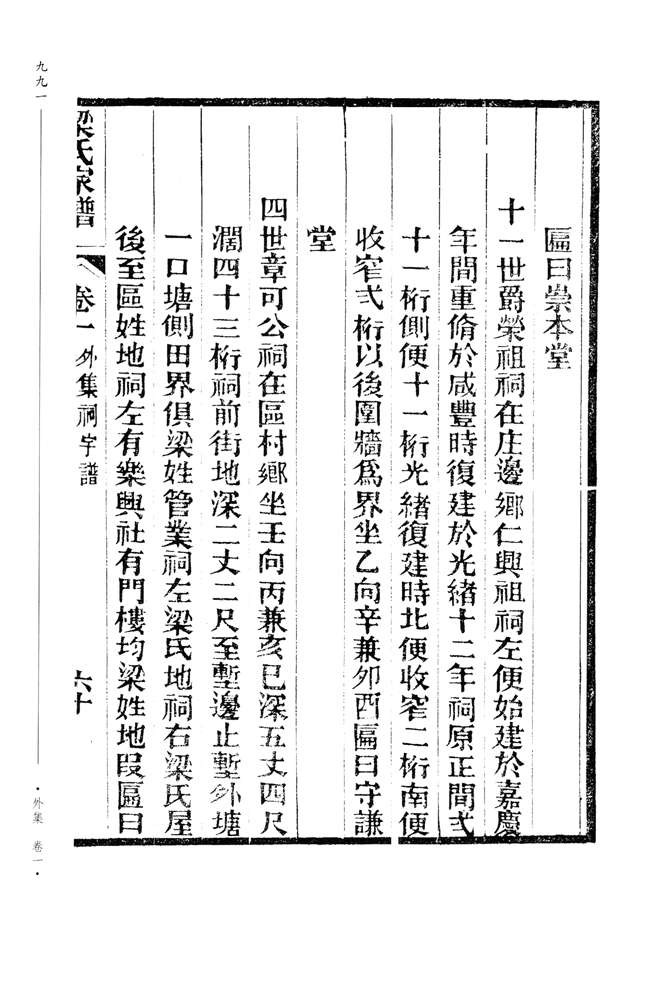 匾曰崇本堂
十一世爵榮祖祠在庄邊鄉仁興祖祠左便始建於嘉慶
年間重脩於咸豐時復建於光緒十二年祠原正間弍
十一桁側便十一桁光緒復建時北便收窄二桁南便
收窄弍桁以後圍牆爲界坐乙向辛兼夘酉匾曰守謙
堂
四世章可公祠在區村鄉坐壬向丙兼亥巳深五丈四尺
濶四十三桁祠前街地深二丈二尺至塹邊止塹外塘
一口塘側田界俱梁姓管業祠左梁氏地祠右梁氏屋
後至區姓地祠左有樂興社有門樓均梁姓地叚匾曰
梁氏家譜 卷一 外集祠宇譜 六十
九九一
·外集 卷一·